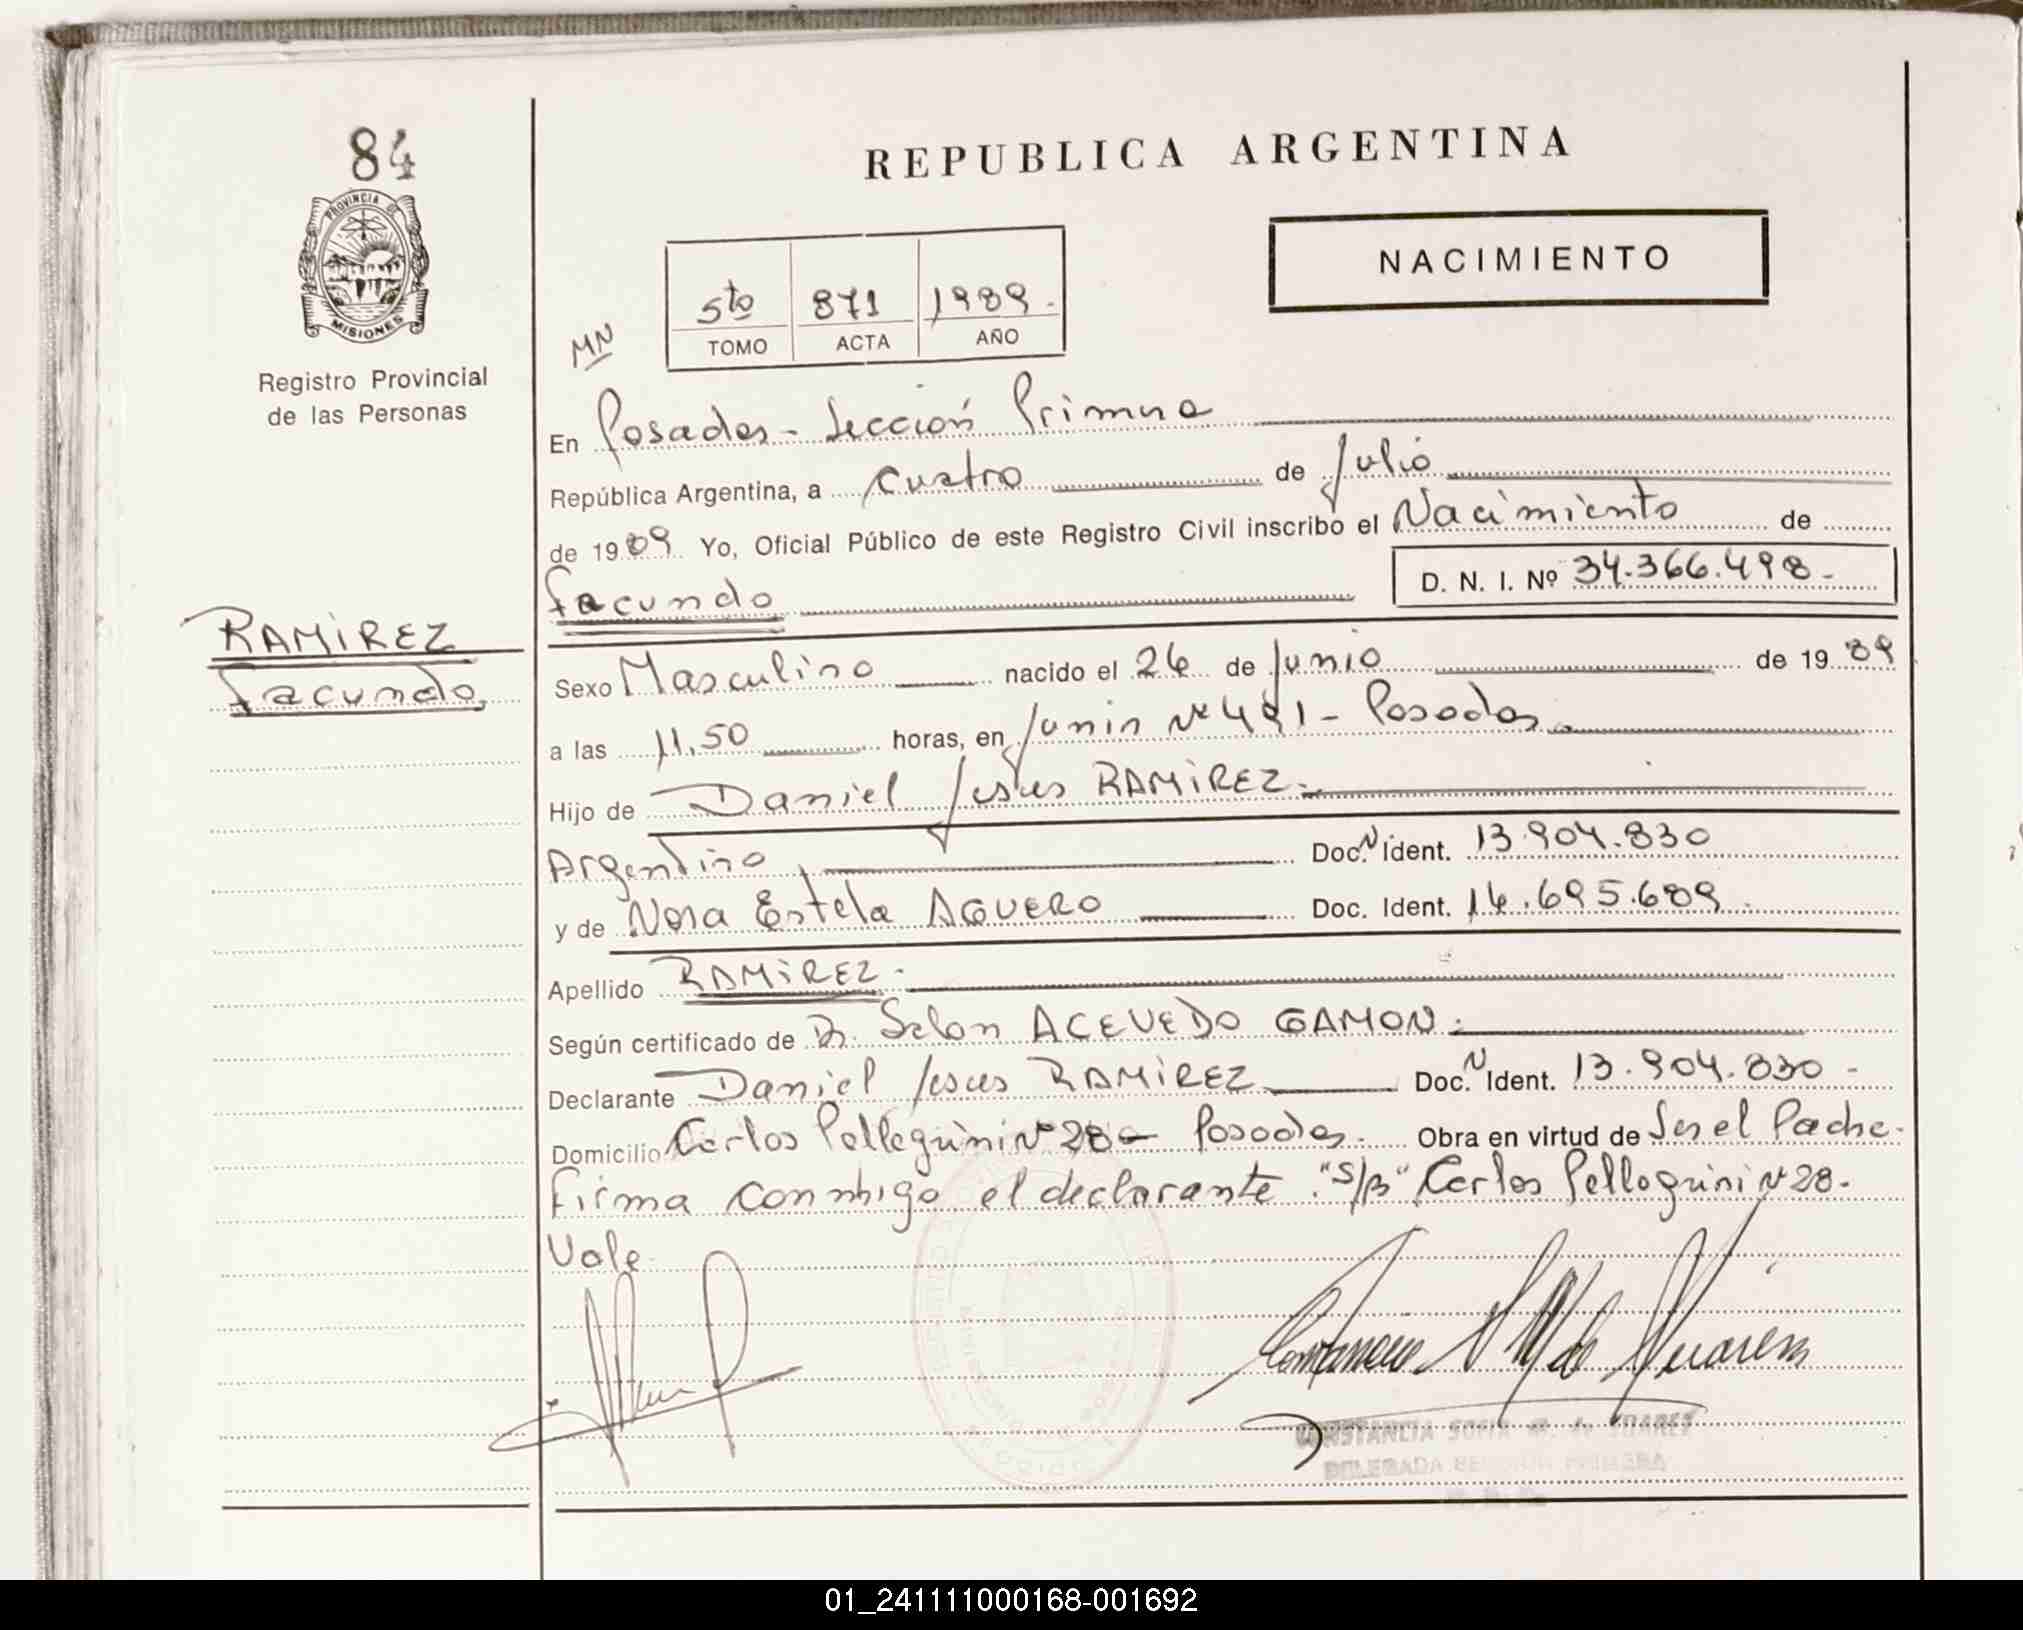 84
PROVINCIA DE
MISIONES
Registro Provincial
de las Personas
REPUBLICA ARGENTINA
NACIMIENTO
5to 871 1989.
TOMO ACTA AÑO
MN
En Posadas - Sección Primera
República Argentina, a cuatro de Julio
de 1989 Yo, Oficial Público de este Registro Civil inscribo el Nacimiento de
Facundo D. N. I. Nº 34.366.498.-
RAMIREZ
Facundo
Sexo Masculino nacido el 26 de Junio de 1989
a las 11,50 horas, en Junin Nº 491 - Posadas.
Hijo de Daniel Jesus RAMIREZ.
Argentino, Doc.N Ident. 13.904.830
y de Nora Estela AGUERO Doc. Ident. 14.695.689.
Apellido RAMIREZ.
Según certificado de Dr. Selon ACEVEDO GAMON.
Declarante Daniel Jesus RAMIREZ Doc.N Ident. 13.904.830-
Domicilio Carlos Pellegrini Nº 28 - Posadas. Obra en virtud de Ser el Padre.
Firma conmigo el declarante. "S/B" Carlos Pellegrini Nº 28.
Vale
CONSTANCIA SOFIA M. de SUAREZ
DELEGADA SECCION PRIMERA
01_241111000168-001692